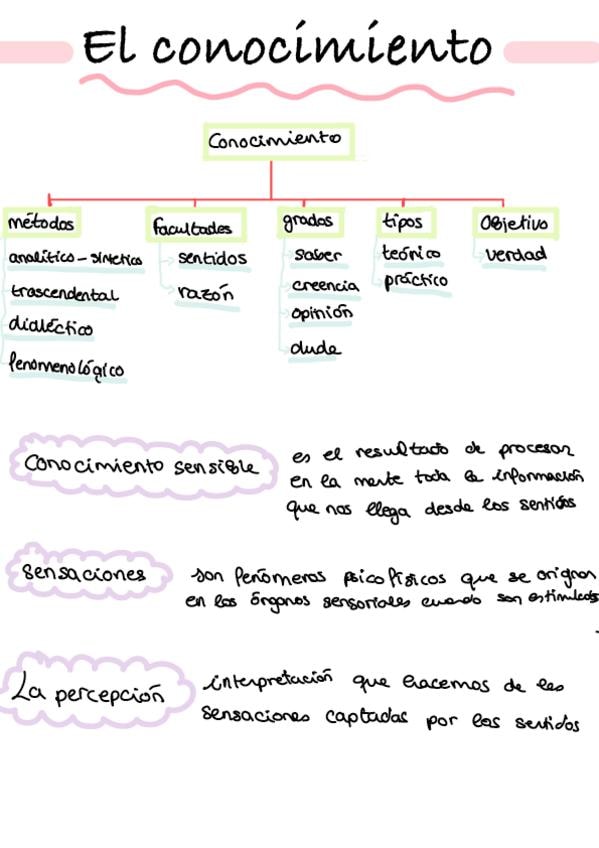 El conocimiento
Conocimiento
métodos
analítico - sintético
trascendental
dialéctico
fenomenológico
facultades
sentidos
razón
grados
saber
creencia
opinión
duda
tipos
teórico
práctico
Objetivo
verdad
Conocimiento sensible
es el resultado de procesar
en la mente toda la información
que nos llega desde los sentidos
Sensaciones
son fenómenos psicofísicos que se originan
en los órganos sensoriales cuando son estimulados
La percepción
interpretación que hacemos de las
sensaciones captadas por los sentidos